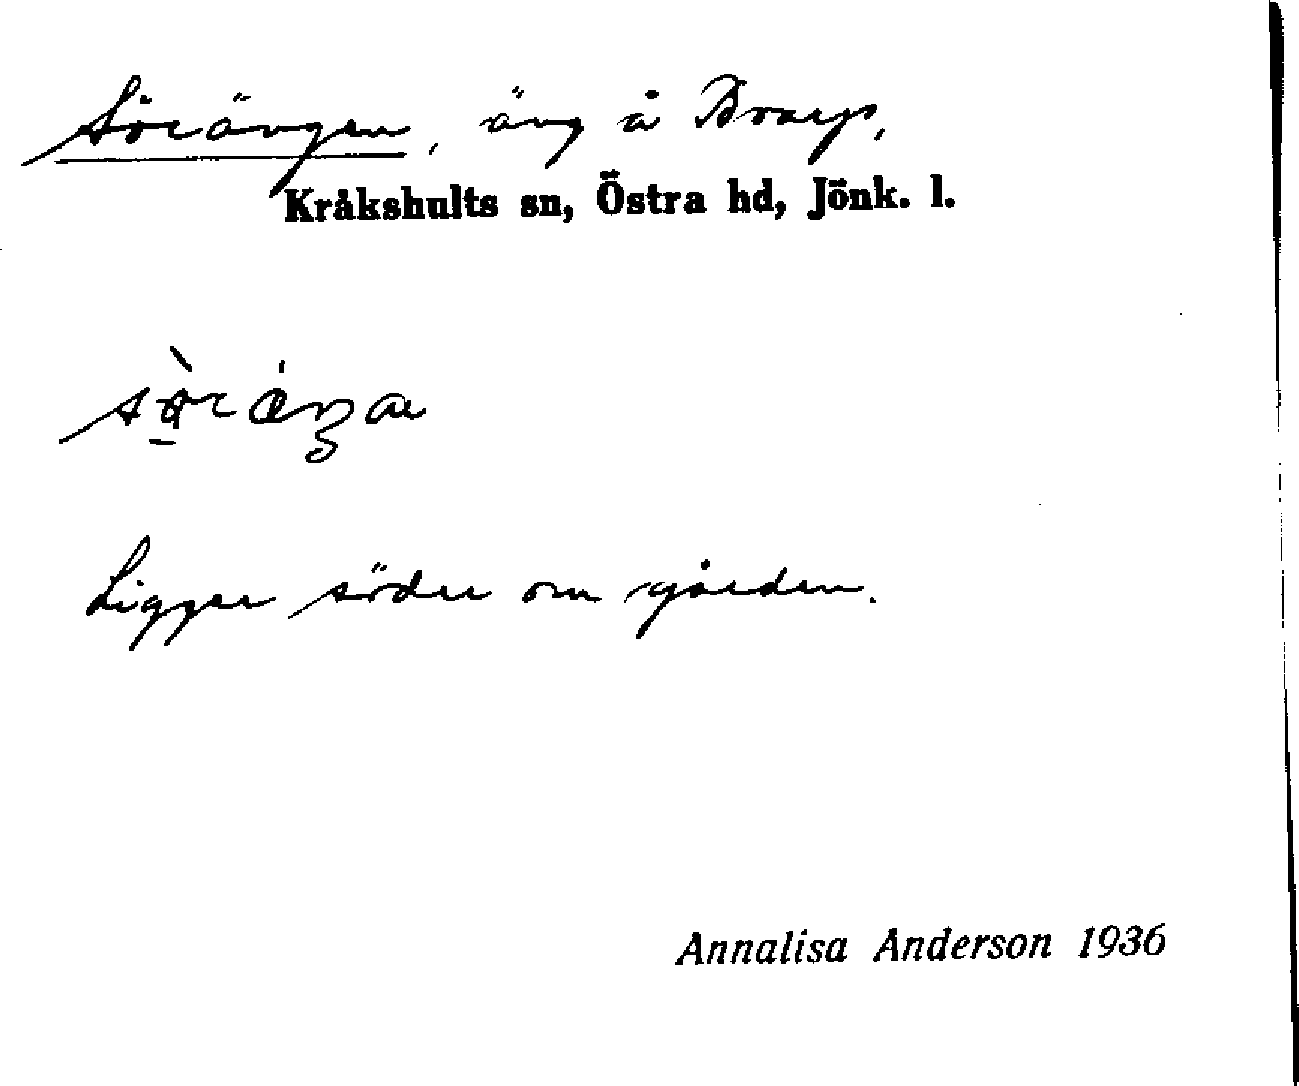 Sörängen, äng å Braryp,
Kråkshults sn, Östra hd, Jönk. l.
Ligger söder om gården.
Annalisa Anderson 1936